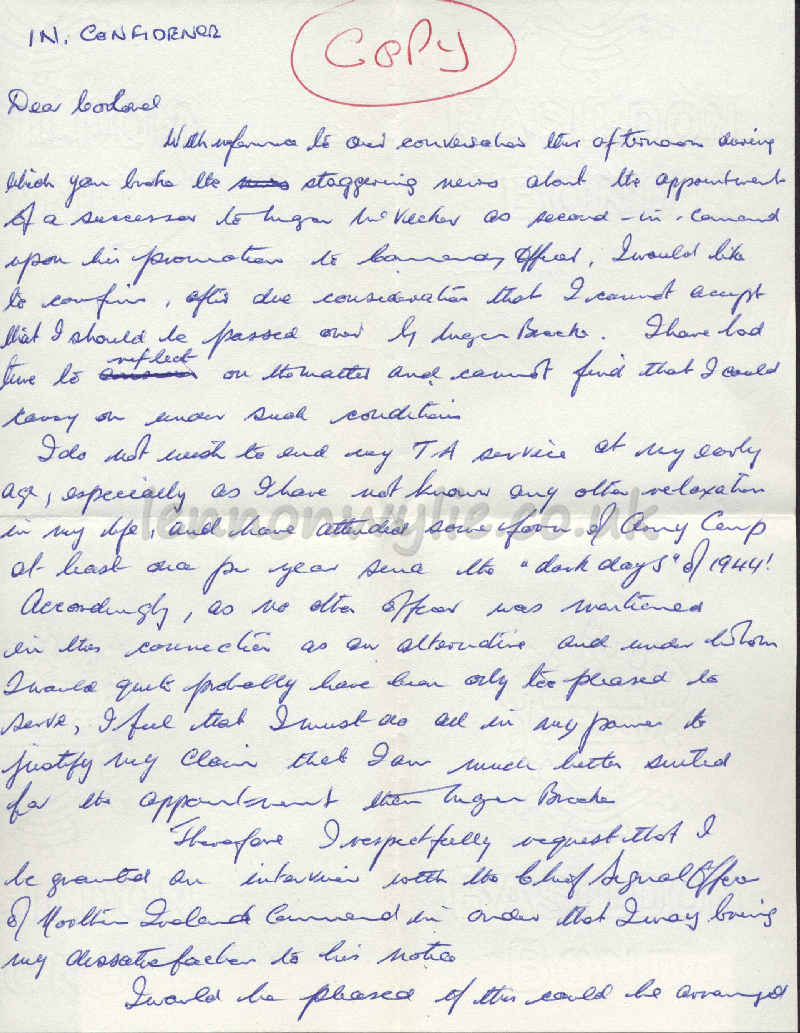 IN. CONFIDENCE
COPY
Dear Colonel
With reference to our conversation this afternoon during
which you broke the news staggering news about the appointment
of a successor to Major McVicker as second-in-command
upon his promotion to Commanding Officer, I would like
to confirm, after due consideration that I cannot accept
that I should be passed over by Major Brooke. I have had
time to reflect on the matter and cannot find that I could
carry on under such conditions
I do not wish to end my TA service at my early
age, especially as I have not known any other relaxation
in my life, and have attended some form of Army Camp
at least once per year since the "dark days" of 1944!
Accordingly, as no other officer was mentioned
in this connection as an alternative and under whom
I would quite probably have been only too pleased to
serve, I feel that I must do all in my power to
justify my claim that I am much better suited
for the appointment than Major
Therefore I respectfully request that I
be granted an interview with the Chief Signal Officer
of Northern Ireland Command in order that I may bring
my dissatisfaction to his notice
I would be pleased if this could be arranged
lennonwylie.co.uk